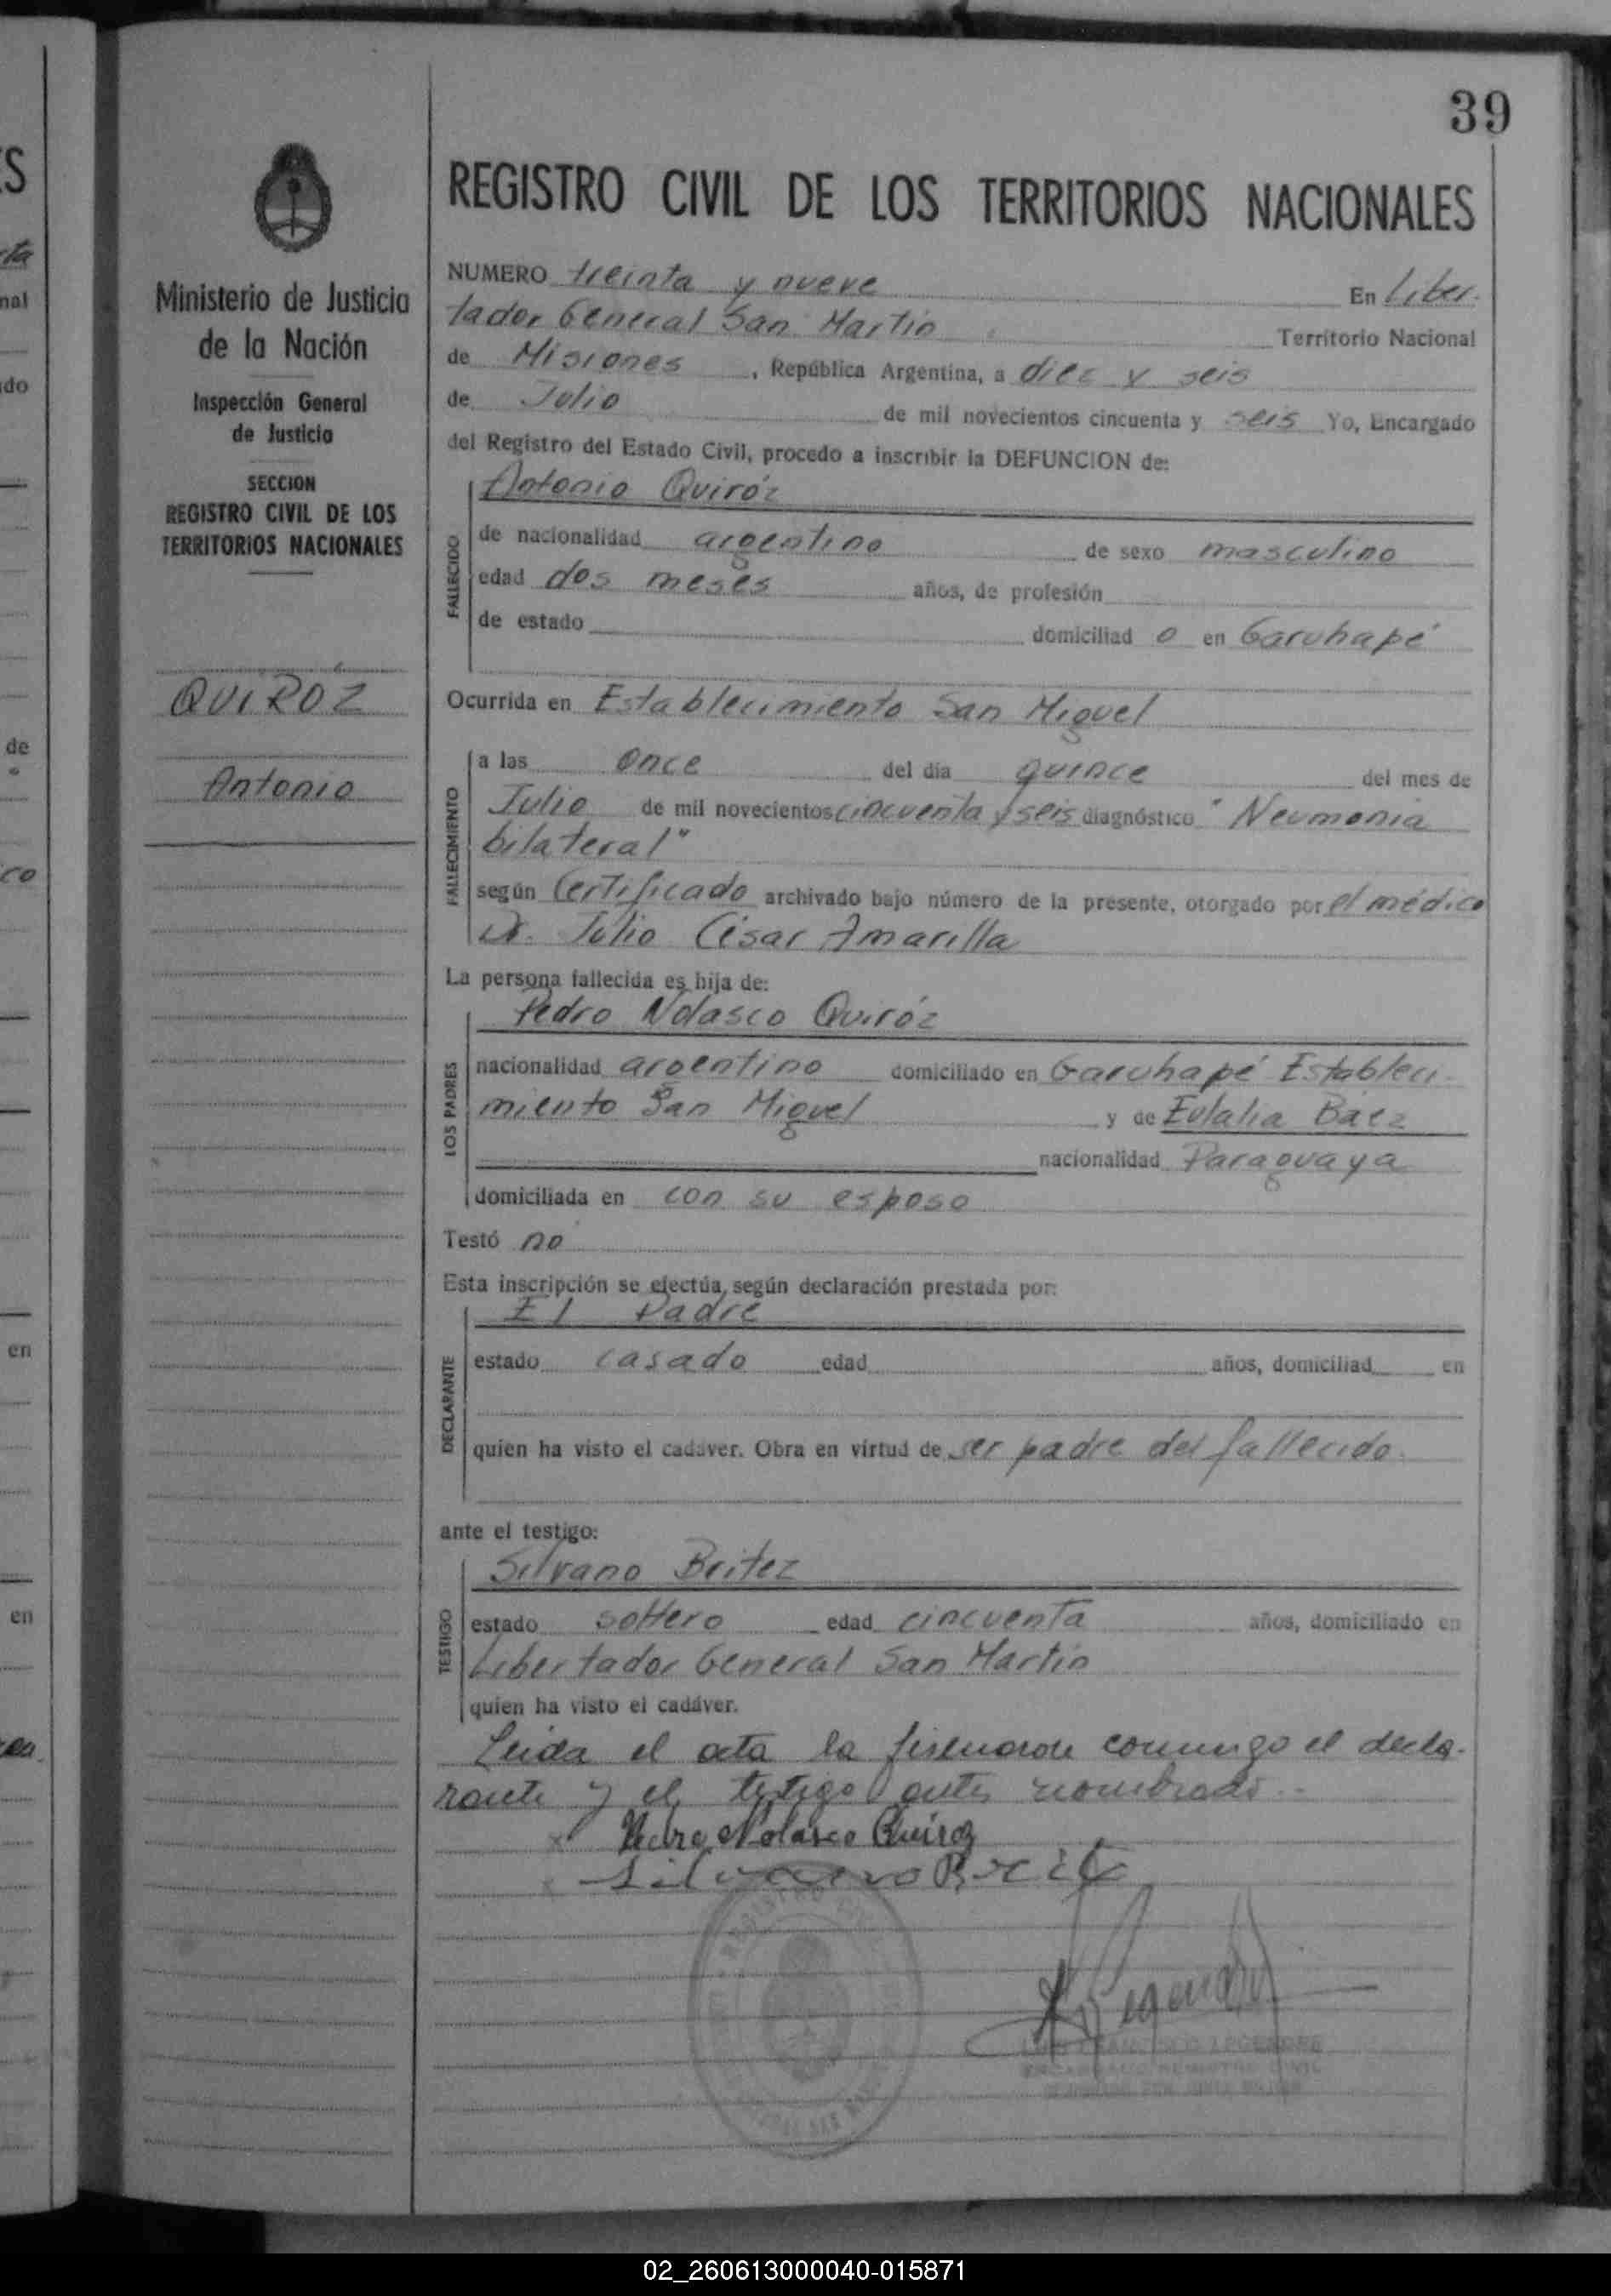 39
REGISTRO CIVIL DE LOS TERRITORIOS NACIONALES
Ministerio de Justicia
de la Nación
Inspección General
de Justicia
SECCION
REGISTRO CIVIL DE LOS
TERRITORIOS NACIONALES
QUIRÓZ
Antonio
NUMERO treinta y nueve En Liber-
tador General San Martin Territorio Nacional
de Misiones, República Argentina, a diez y seis
de Julio de mil novecientos cincuenta y seis Yo, Encargado
del Registro del Estado Civil, procedo a inscribir la DEFUNCION de:
FALLECIDO
Antonio Quiróz
de nacionalidad argentino de sexo masculino
edad dos meses años, de profesión
de estado domiciliad o en Garuhapé
Ocurrida en Establecimiento San Miguel
FALLECIMIENTO
a las once del día quince del mes de
Julio de mil novecientos cincuenta y seis diagnóstico "Neumonia
bilateral"
según Certificado archivado bajo número de la presente, otorgado por el médico
Dr. Julio César Amarilla
La persona fallecida es hija de:
LOS PADRES
Pedro Nolasco Quiróz
nacionalidad argentino domiciliado en Garuhapé Estableci-
miento San Miguel y de Eulalia Báez
nacionalidad Paraguaya
domiciliada en con su esposo
Testó no
Esta inscripción se efectúa, según declaración prestada por:
DECLARANTE
El Padre
estado casado edad años, domiciliad en
quien ha visto el cadáver. Obra en virtud de ser padre del fallecido.
ante el testigo:
TESTIGO
Silvano Britez
estado soltero edad cincuenta años, domiciliado en
Libertador General San Martin
quien ha visto el cadáver.
Leida el acta la firmaron conmigo el decla-
rante y el testigo antes nombrado.-
x Pedro Nolasco Quiroz
x Silvano Brit
02_260613000040-015871